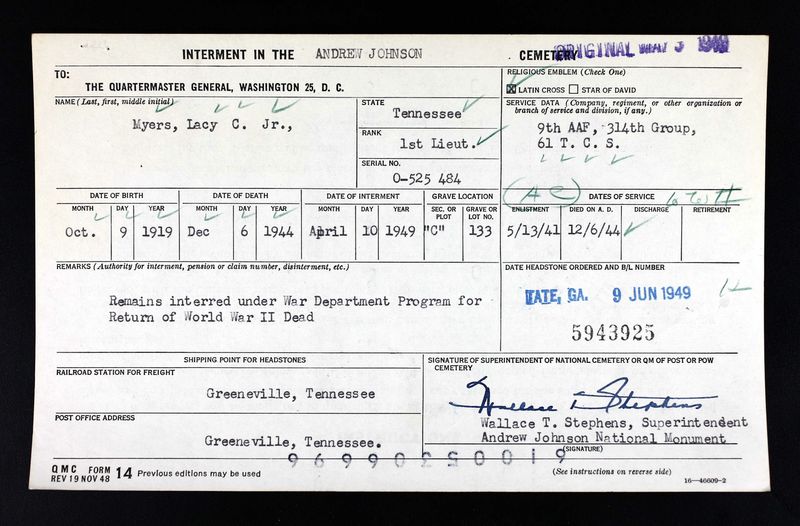 INTERMENT IN THE ANDREW JOHNSON CEMETERY
ORIGINAL MAY 3 1949
TO:
THE QUARTERMASTER GENERAL, WASHINGTON 25, D. C.
RELIGIOUS EMBLEM (Check One)
☒ LATIN CROSS ☐ STAR OF DAVID
NAME (Last, first, middle initial)
Myers, Lacy C. Jr.,
STATE
Tennessee
RANK
1st Lieut.
SERIAL NO.
O-525 484
SERVICE DATA (Company, regiment, or other organization or
branch of service and division, if any.)
9th AAF, 314th Group,
61 T. C. S.
DATE OF BIRTH DATE OF DEATH DATE OF INTERMENT GRAVE LOCATION
MONTH DAY YEAR MONTH DAY YEAR MONTH DAY YEAR SEC. OR PLOT GRAVE OR LOT NO.
Oct. 9 1919 Dec 6 1944 April 10 1949 "C" 133
DATES OF SERVICE
ENLISTMENT DIED ON A. D. DISCHARGE RETIREMENT
5/13/41 12/6/44
REMARKS (Authority for interment, pension or claim number, disinterment, etc.)
Remains interred under War Department Program for
Return of World War II Dead
DATE HEADSTONE ORDERED AND B/L NUMBER
TATE, GA. 9 JUN 1949
5943925
SHIPPING POINT FOR HEADSTONES
RAILROAD STATION FOR FREIGHT
Greeneville, Tennessee
POST OFFICE ADDRESS
Greeneville, Tennessee.
SIGNATURE OF SUPERINTENDENT OF NATIONAL CEMETERY OR QM OF POST OR POW
CEMETERY
Wallace T. Stephens
Wallace T. Stephens, Superintendent
Andrew Johnson National Monument
(SIGNATURE)
QMC FORM 14 Previous editions may be used
REV 19 NOV 48
(See instructions on reverse side)
16—46609-2